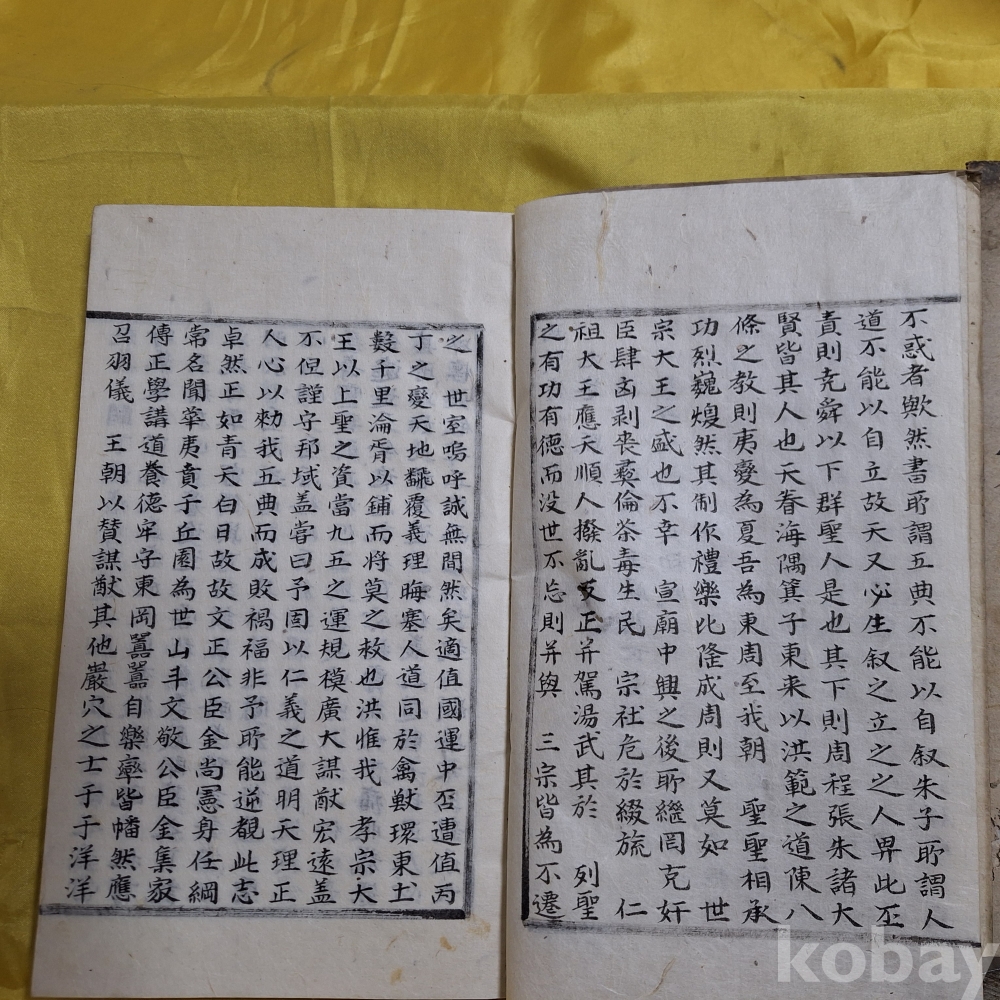 不惑者歟然書所謂五典不能以自叙朱子所謂人
道不能以自立故天又必生叙之立之之人畀此丕
責則堯舜以下群聖人是也其下則周程張朱諸大
賢皆其人也天眷海隅箕子東来以洪範之道陳八
條之教則夷變為夏吾為東周至我朝 聖聖相承
功烈巍煥然其制作禮樂比隆成周則又莫如 世
宗大王之盛也不幸 宣廟中興之後所繼罔克奸
臣肆凶剥喪彛倫荼毒生民 宗社危於綴旒 仁
祖大王應天順人撥亂反正并駕湯武其於 列聖
之有功有德而没世不忘則并與 三宗皆為不遷
之 世室嗚呼誠無間然矣適值國運中否遭值丙
丁之變天地飜覆義理晦塞人道同於禽獸環東土
數千里淪胥以鋪而将莫之救也洪惟我 孝宗大
王以上聖之資當九五之運規模廣大謀猷宏遠盖
不但謹守邦域盖嘗曰予固以仁義之道明天理正
人心以勑我五典而成敗禍福非予所能逆覩此志
卓然正如青天白日故故文正公臣金尚憲身任綱
常名聞華夷賁于丘園為世山斗文敬公臣金集家
傳正學講道養德牢守東岡囂囂自樂率皆幡然應
召羽儀 王朝以賛謀猷其他巖穴之士于于洋洋
kobay